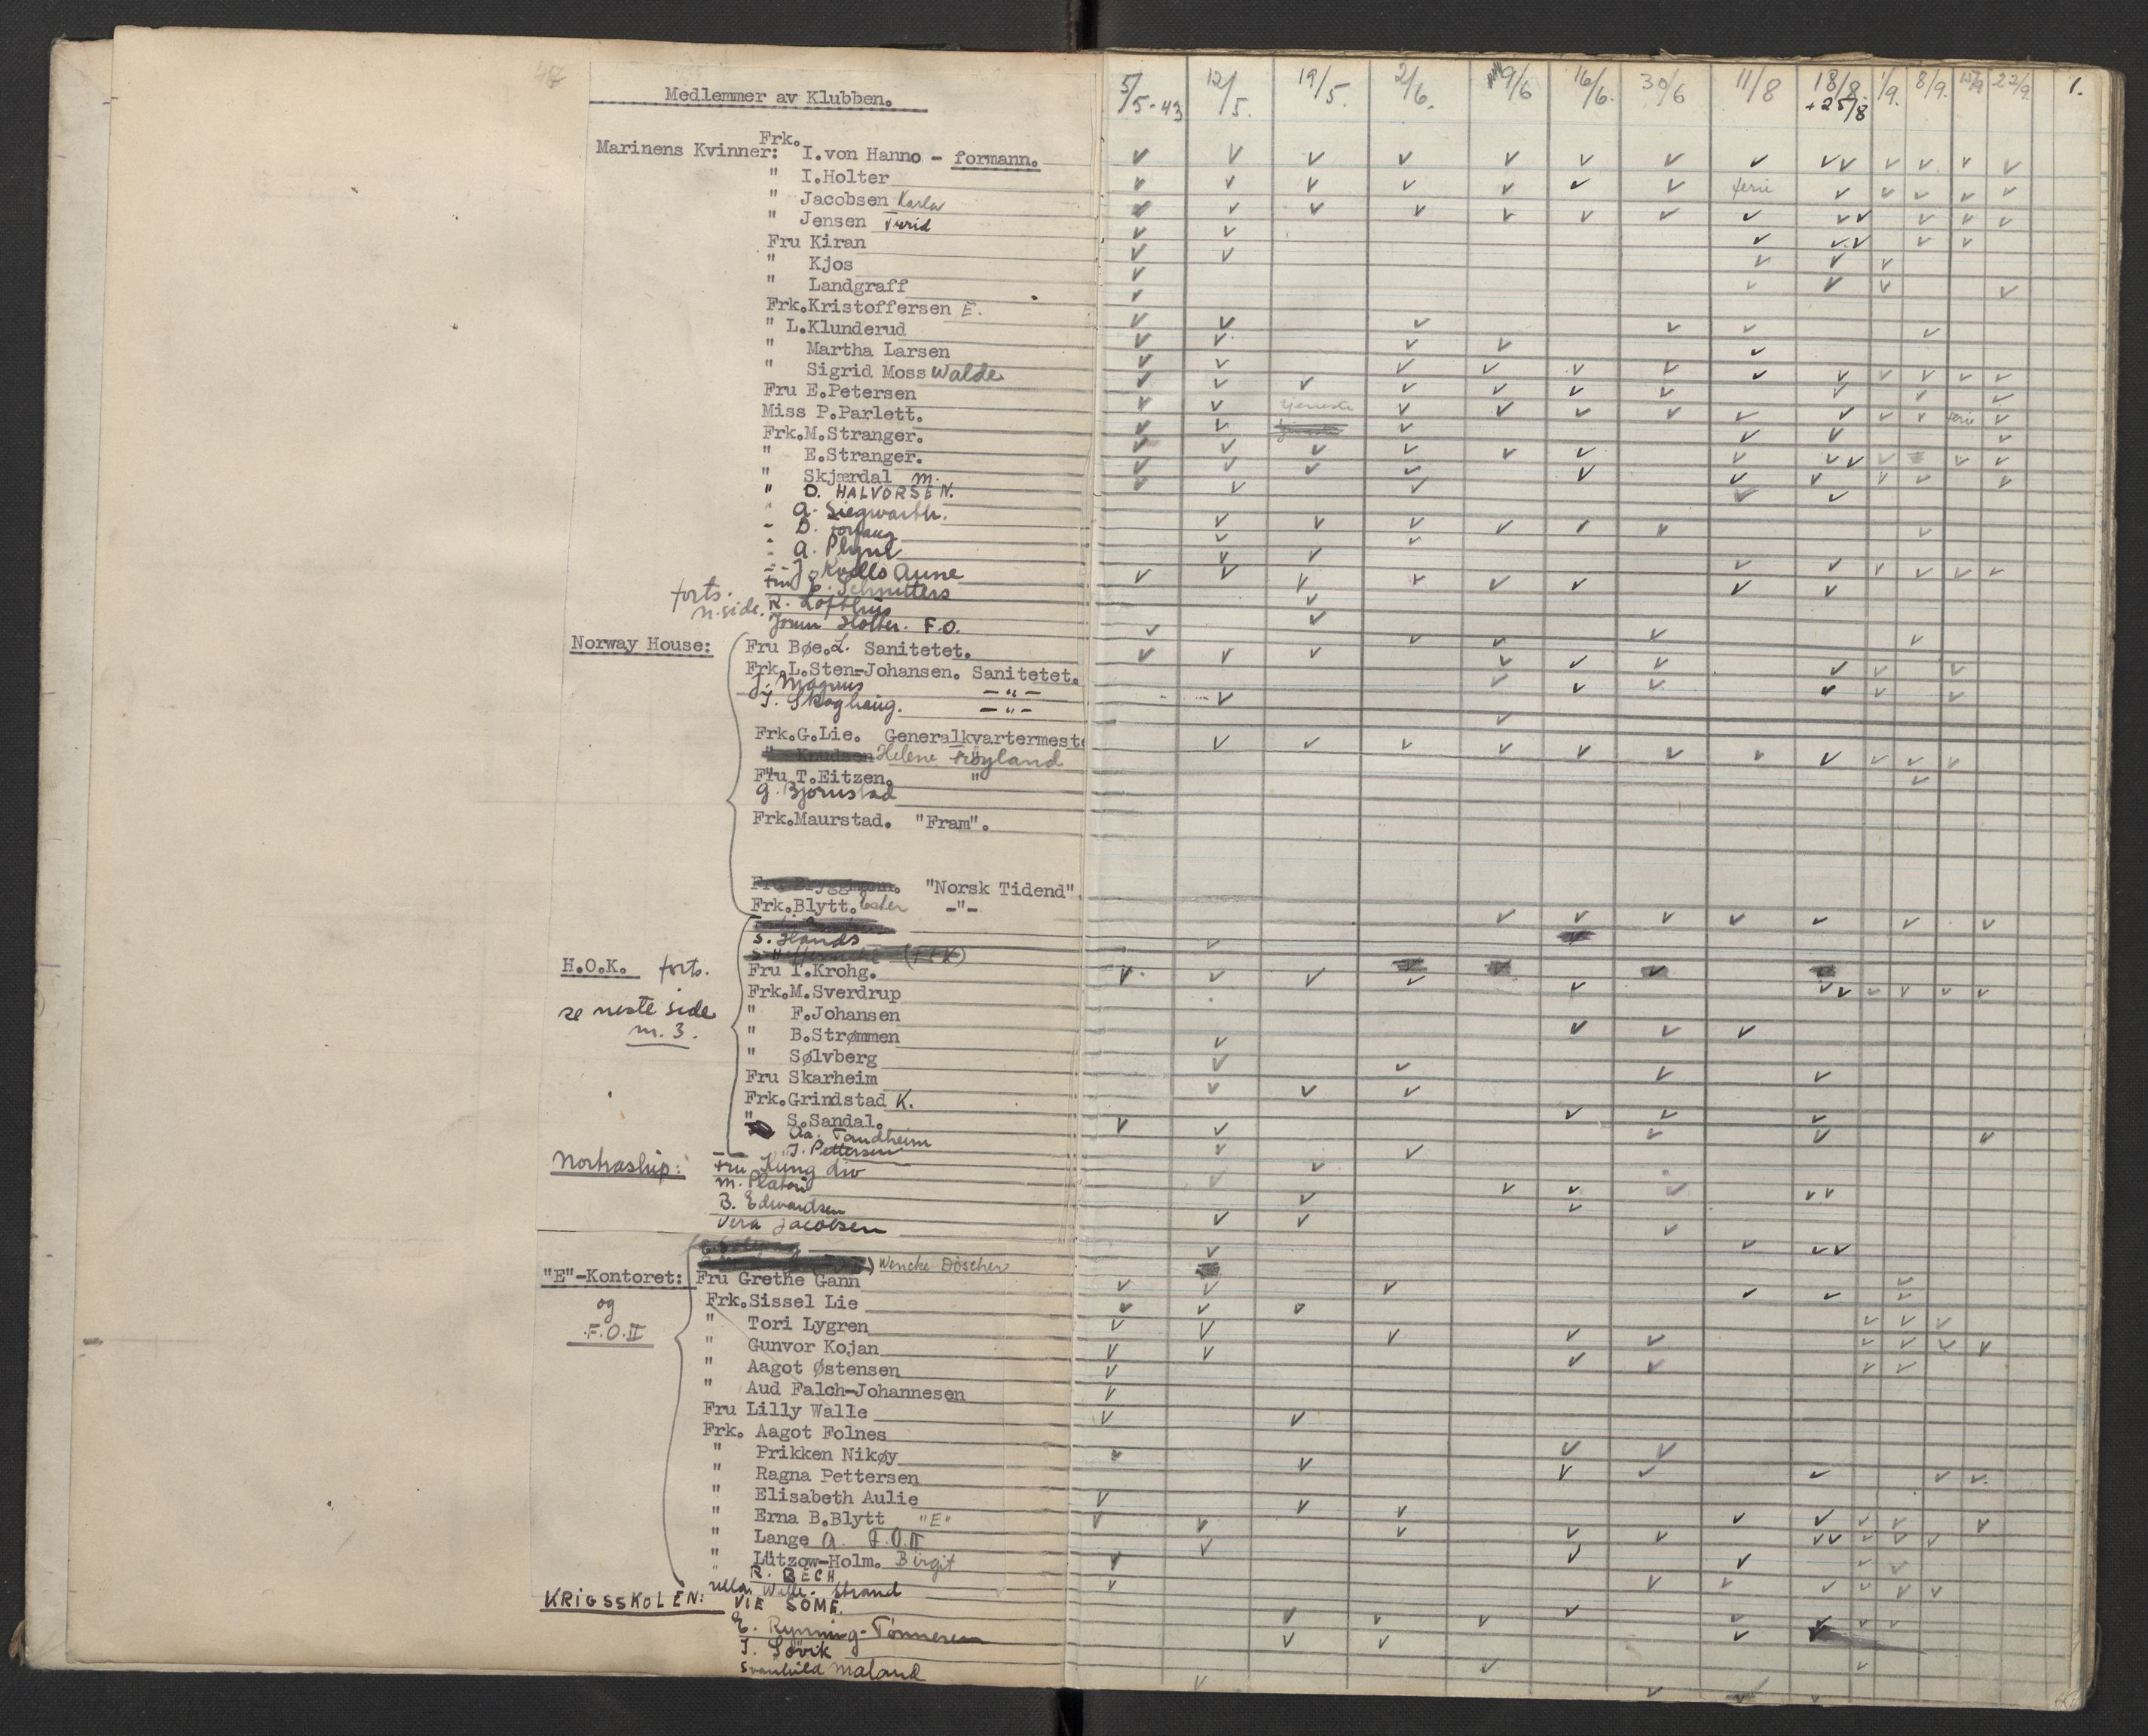 Medlemmer av Klubben.
5/5-43 12/5. 19/5. 2/6. 9/6 16/6. 30/6 11/8 18/8 +25/8 1/9. 8/9. 15/9 22/9 1.
Frk.
Marinens Kvinner: I.von Hanno - formann.
" I.Holter ferie
" Jacobsen Karla
" Jensen Turid
Fru Kiran
" Kjos
" Landgraff
Frk.Kristoffersen E.
" L.Klunderud
" Martha Larsen
" Sigrid Moss Walde
Fru E.Petersen
Miss P.Parlett. tjeneste ferie
Frk.M.Stranger.
" E.Stranger.
" Skjærdal M.
" D. HALVORSEN.
" A. Siegwarth.
- D. Torfaug
A. Plyml
J. Kvello Aune
Fru E. Schnitters
forts. n.side. R. Lofthus
Jorun Holter. F.O.
Norway House: Fru Bøe.L. Sanitetet.
Frk.L.Sten-Johansen. Sanitetet.
J. Magnus -"-
I. Skoghaug. -"-
Frk.G.Lie. Generalkvartermeste
" Knudsen Helene Frøyland
Fru T.Eitzen. "
G. Bjørnstad
Frk.Maurstad. "Fram".
Fru Bryggmann. "Norsk Tidend"
Frk.Blytt. Ester -"-
S. Hands
H.O.K. forts.
Fru I.Krohg.
se neste side
m. 3.
Frk.M.Sverdrup
" F.Johansen
" B.Strømmen
" Sølvberg
Fru Skarheim
Frk.Grindstad K.
" S.Sandal.
Aa. Tandheim
J. Pettersen
Nortraship: Fru Kung Liv
M. Platou
B. Edwardsen
Vera Jacobsen
Wencke Döscher
"E"-Kontoret: Fru Grethe Gann
og
F.O.II
Frk.Sissel Lie
" Tori Lygren
" Gunvor Kojan
" Aagot Østensen
" Aud Falch-Johannesen
Fru Lilly Walle
Frk. Aagot Folnes
" Prikken Nikøy
" Ragna Pettersen
" Elisabeth Aulie
" Erna B.Blytt "E"
" Lange A. F.O.II
" Lützow-Holm. Birgit
" R. BECH
Ulla Wille-Strand
KRIGSSKOLEN: VIE SØME.
E. Rynning-Tønnesen
I. Søvik
Svanhild Maland